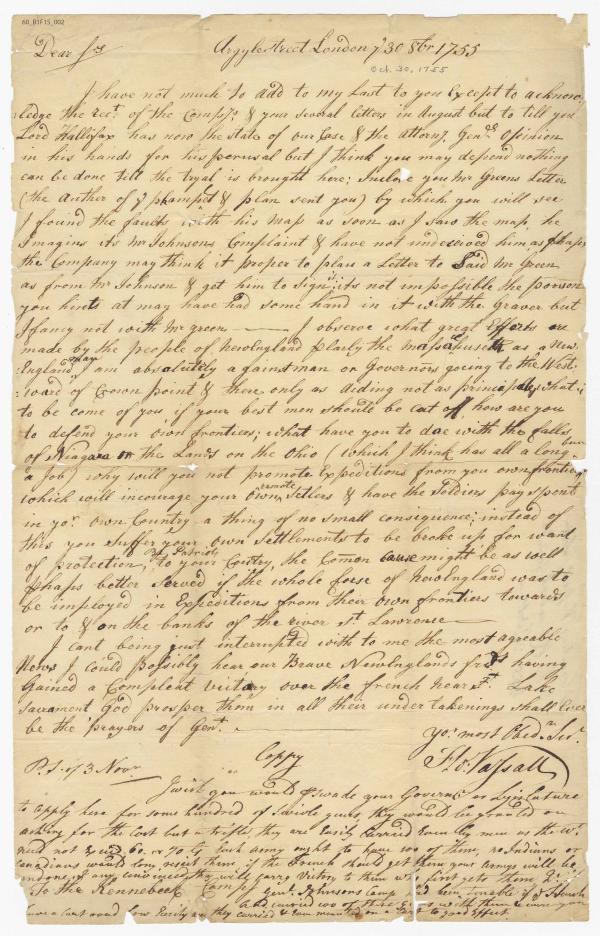 60_B1F15_002
Dear Sr
Argyle street London ye 30 8br 1755
Oct. 30, 1755
I have not much to add to my Last to you Except to acknow
ledge the rect. of the Compys. & your several letters in August but to tell you
Lord Hallifax has now the state of our Case & the Attorny. Genls. Opinion
in his hands for his perusal but I think you may depend nothing
can be done till the tryal is brought here; Inclose you Mr Greens Letter
(the Author of ye phamplet & plan sent you) by which you will see
I found the faults with his map as soon as I saw the map, he
Imagins its Mr Johnsons Complaint & have not undeceived him, as
the Company may think it proper to plan a Letter to Said Mr Green
as from Mr Johnson & got him to sign it; its not impossible the person
you hints at may have had some hand in it with the Graver but
I fancy not with Mr green — I observe what great Efforts are
made by the people of NewEngland as a New
England man I am absolutely against man or Governors going to the West
ward of Crown point & there only as aiding not as principals, what is
to be come of you if your best men should be cut off how are you
to defend your own frontiers; what have you to doe with the falls
of Niagara or the Lands on the Ohio (which I think has all a long been
a Job) why will you not promote Expeditions from you own frontiers
which will incourage your own remote Setlers & have the Soldiers pay Spent
in yor. own Country a thing of no small consequence; instead of
this you suffer your own settlements to be broke up for want
of protection, to your Coutry, the Common cause might be as well
phaps better Served if the whole forse of NewEngland was to
be imployed in Expeditions from their own frontiers towards
or to & on the banks of the river St. Lawrence
I cant being just interrupted with to me the most agreable
News I could Possibly hear our Brave NewEnglands frds having
Gained a Compleat victory over the french near Ft. Lake
Sacrament God prosper them in all their undertakeings shall Ever
be the prayers of Gent.
yor. most Obedn. Ser.
Coppy
Flo. Vassall
P.S. of 3 Novr
I wish you would your Governr. or Legislature
to apply here for some hundred of Swivle guns, they would be granted on
asking for the Cost but a trifle, they are Easily Carried Even by men as the wt.
need not Exceed 60. or 70 lb Each army ought to have 100 of them, no Indians or
Canadians would long resist them if the French should get them your Armys will be
undone, if any convinced they will carry Victory to them who first gets them
To the Kennebeck Compy
Genl. Johnsons Camp had been tenable if ye french
had carried 100 of these guns with them
have a Cart road how Easily are they carried & two mounted on a Cart to good Effect.